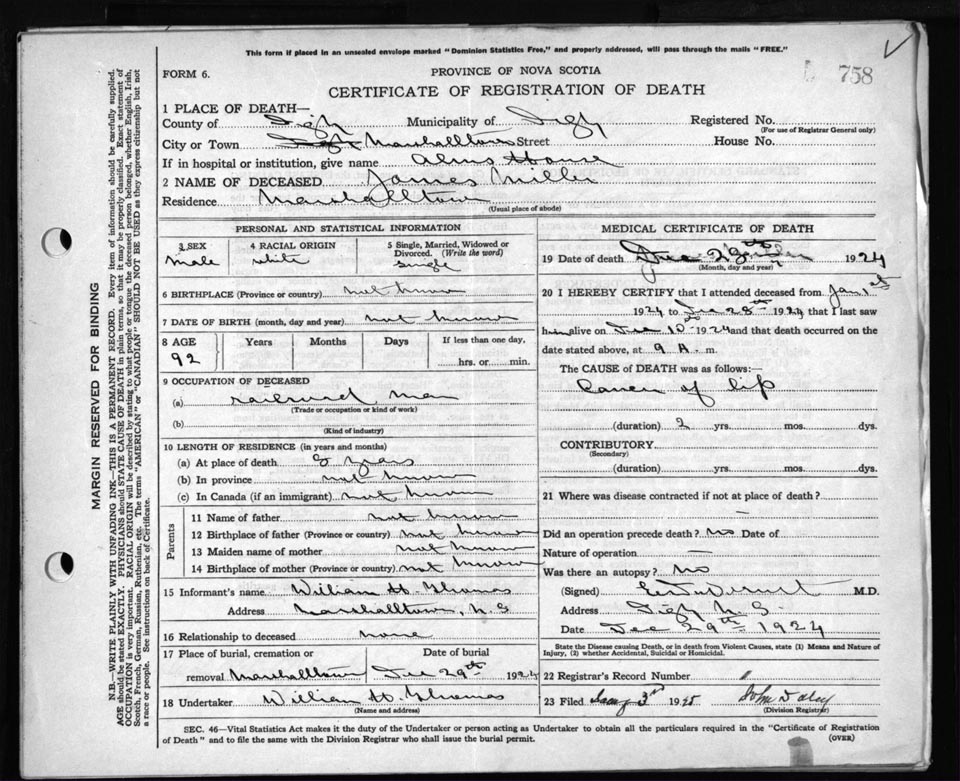 This form if placed in an unsealed envelope marked "Dominion Statistics Free," and properly addressed, will pass through the mails "FREE."
FORM 6.
PROVINCE OF NOVA SCOTIA
758
CERTIFICATE OF REGISTRATION OF DEATH
1 PLACE OF DEATH—
County of Digby Municipality of Digby Registered No.
(For use of Registrar General only)
City or Town Marshalltown Street House No.
If in hospital or institution, give name Alms House
2 NAME OF DECEASED James Miller
Residence Marshalltown
(Usual place of abode)
PERSONAL AND STATISTICAL INFORMATION
3 SEX 4 RACIAL ORIGIN 5 Single, Married, Widowed or Divorced. (Write the word)
male white single
6 BIRTHPLACE (Province or country) not known
7 DATE OF BIRTH (month, day and year) not known
8 AGE Years Months Days If less than one day,
92 hrs. or min.
9 OCCUPATION OF DECEASED
(a) railroad man
(Trade or occupation or kind of work)
(b)
(Kind of industry)
10 LENGTH OF RESIDENCE (in years and months)
(a) At place of death years
(b) In province not known
(c) In Canada (if an immigrant) not known
Parents
11 Name of father not known
12 Birthplace of father (Province or country) not known
13 Maiden name of mother not known
14 Birthplace of mother (Province or country) not known
15 Informant's name William H. Thomas
Address Marshalltown, N.S
16 Relationship to deceased none
17 Place of burial, cremation or removal Date of burial
Marshalltown Dec 29th 1924
18 Undertaker William H. Thomas
(Name and address)
MEDICAL CERTIFICATE OF DEATH
19 Date of death Dec 28th 1924
(Month, day and year)
20 I HEREBY CERTIFY that I attended deceased from Jan 1st
1924 to Dec 28th 1924 that I last saw
him alive on Dec 10 1924 and that death occurred on the
date stated above, at 9 A. m.
The CAUSE of DEATH was as follows:
Cancer of lip
(duration) 2 yrs. mos. dys.
CONTRIBUTORY.
(Secondary)
(duration) yrs. mos. dys.
21 Where was disease contracted if not at place of death?
—
Did an operation precede death? no Date of
Nature of operation —
Was there an autopsy? No
(Signed) M.D.
Address Digby N.S.
Date Dec 29th 1924
State the Disease causing Death, or in death from Violent Causes, state (1) Means and Nature of Injury, (2) whether Accidental, Suicidal or Homicidal.
22 Registrar's Record Number
23 Filed Jany 3rd 1925 John Daley
(Division Registrar)
SEC. 46—Vital Statistics Act makes it the duty of the Undertaker or person acting as Undertaker to obtain all the particulars required in the "Certificate of Registration
of Death" and to file the same with the Division Registrar who shall issue the burial permit. (OVER)
MARGIN RESERVED FOR BINDING
N.B.—WRITE PLAINLY WITH UNFADING INK—THIS IS A PERMANENT RECORD. Every item of information should be carefully supplied.
AGE should be stated EXACTLY. PHYSICIANS should STATE CAUSE OF DEATH in plain terms, so that it may be properly classified. Exact statement of
OCCUPATION is very important. RACIAL ORIGIN will be described by stating to what people or tongue the deceased person belonged, whether English, Irish,
Scotch, French, German, Russian, Ruthenian, etc. The terms "AMERICAN" or "CANADIAN" SHOULD NOT BE USED as they express citizenship but not
a race or people. See instructions on back of Certificate.